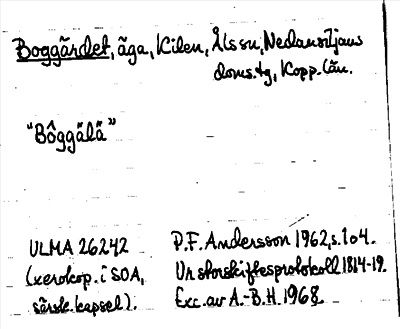 Boggärdet, äga, Kilen, Ålssn, Nedansiljans
doms.tg, Kopp.län.
"Bôggälä"
ULMA 26242
(xerokop. i SOA,
särsk. kapsel).
P.F. Andersson 1962, s. 104.
Ur storskiftesprotokoll 1814-19.
Exc. av A.-B.H. 1968.